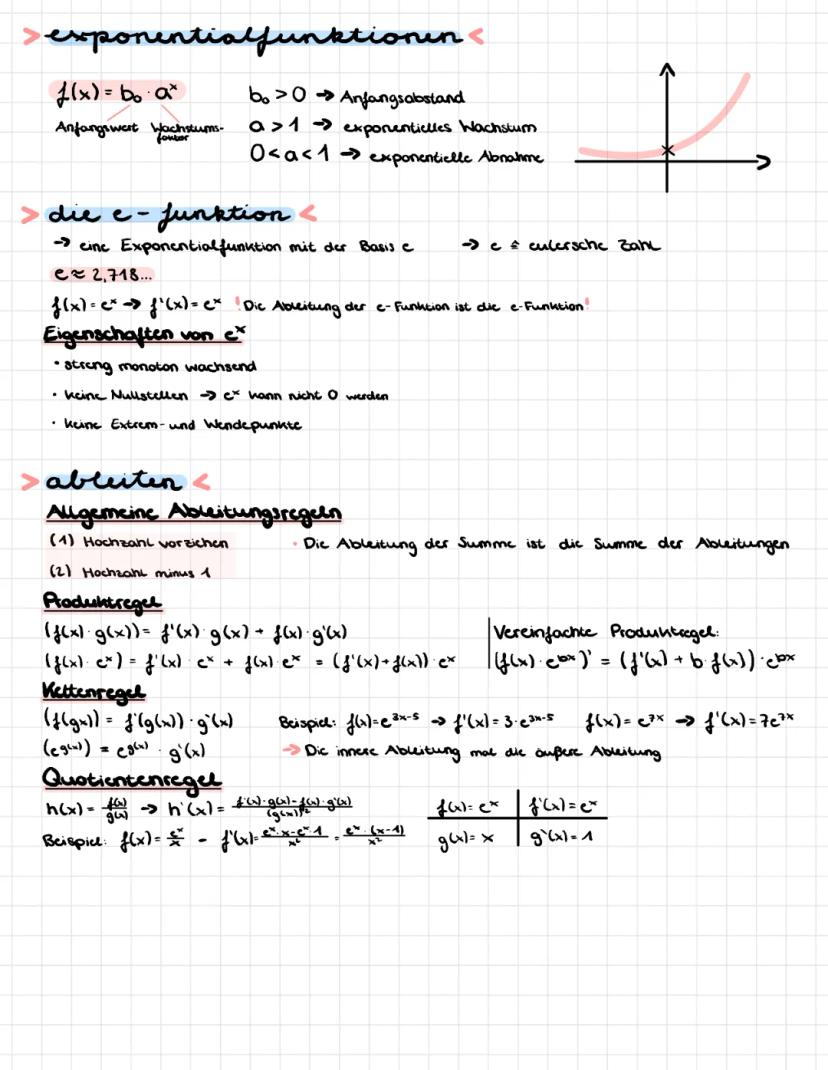 > exponentialfunktionen <
f(x) = b₀ · aˣ
Anfangswert Wachstums-
faktor
b₀ > 0 → Anfangsabstand
a > 1 → exponentielles Wachstum
0 < a < 1 → exponentielle Abnahme
> die e-funktion <
→ eine Exponentialfunktion mit der Basis e → e ≙ eulersche Zahl
e ≈ 2,718...
f(x) = eˣ → f'(x) = eˣ ! Die Ableitung der e-Funktion ist die e-Funktion!
Eigenschaften von eˣ
· streng monoton wachsend
· keine Nullstellen → eˣ kann nicht 0 werden
· keine Extrem- und Wendepunkte
> ableiten <
Allgemeine Ableitungsregeln
(1) Hochzahl vorziehen
(2) Hochzahl minus 1
· Die Ableitung der Summe ist die Summe der Ableitungen
Produktregel
(f(x) · g(x)) = f'(x) · g(x) + f(x) · g'(x)
(f(x) · eˣ) = f'(x) · eˣ + f(x) · eˣ = (f'(x) + f(x)) · eˣ
Vereinfachte Produktregel:
(f(x) · e^bx)' = (f'(x) + b · f(x)) · e^bx
Kettenregel
(f(gx)) = f'(g(x)) · g'(x)
(e^g(x)) = e^g(x) · g'(x)
Beispiel: f(x) = e^3x-5 → f'(x) = 3 · e^3x-5 f(x) = e^7x → f'(x) = 7e^7x
→ Die innere Ableitung mal die äußere Ableitung
Quotientenregel
h(x) = f(x)/g(x) → h'(x) = f'(x) · g(x) - f(x) · g'(x)/(g(x))²
Beispiel: f(x) = eˣ/x - f'(x) = eˣ · x - eˣ · 1/x² = eˣ · (x-1)/x²
f(x) = eˣ f'(x) = eˣ
g(x) = x g'(x) = 1